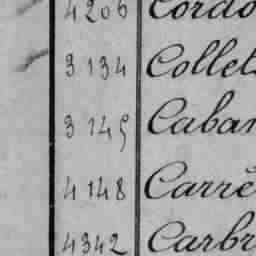 4206 Cordo
3134 Collet
3145 Caban
4148 Carré
4342 Carbr